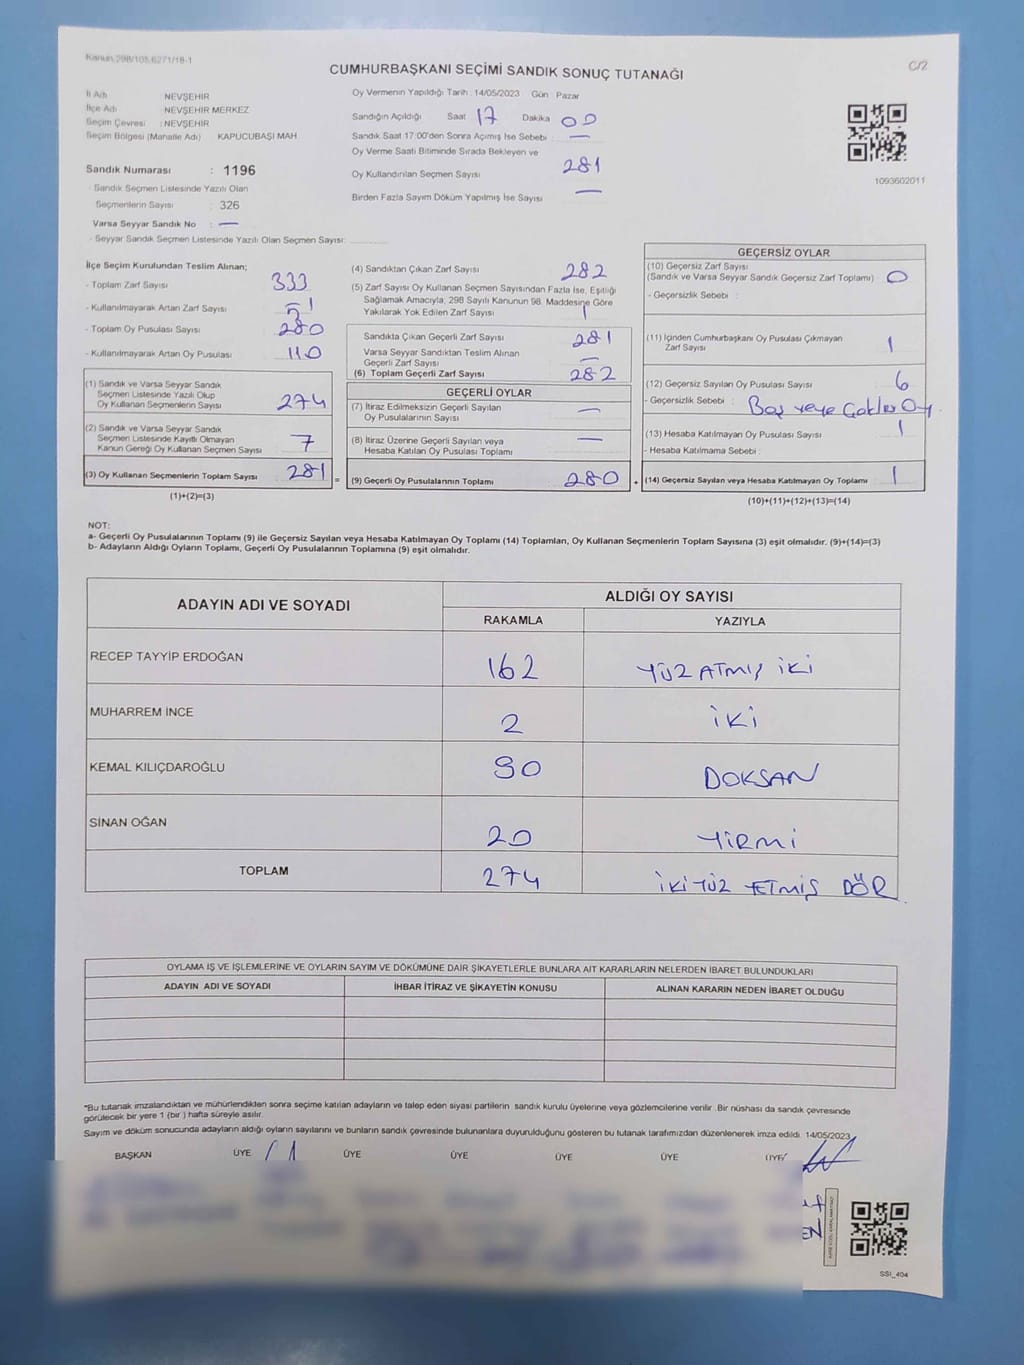 Kanun,298/105,6271/18-1
C/2
CUMHURBAŞKANI SEÇİMİ SANDIK SONUÇ TUTANAĞI
İl Adı : NEVŞEHİR
İlçe Adı : NEVŞEHİR MERKEZ
Seçim Çevresi : NEVŞEHİR
Seçim Bölgesi (Mahalle Adı) KAPUCUBAŞI MAH
Sandık Numarası : 1196
- Sandık Seçmen Listesinde Yazılı Olan
Seçmenlerin Sayısı : 326
Varsa Seyyar Sandık No : —
- Seyyar Sandık Seçmen Listesinde Yazılı Olan Seçmen Sayısı:
Oy Vermenin Yapıldığı Tarih : 14/05/2023 Gün : Pazar
Sandığın Açıldığı Saat 17 Dakika 00
Sandık Saat 17:00'den Sonra Açımış İse Sebebi : —
Oy Verme Saati Bitiminde Sırada Bekleyen ve
Oy Kullandırılan Seçmen Sayısı 281
Birden Fazla Sayım Döküm Yapılmış İse Sayısı —
1093602011
İlçe Seçim Kurulundan Teslim Alınan;
- Toplam Zarf Sayısı 333
- Kullanılmayarak Artan Zarf Sayısı
- Toplam Oy Pusulası Sayısı 280
- Kullanılmayarak Artan Oy Pusulası 110
(1) Sandık ve Varsa Seyyar Sandık
Seçmen Listesinde Yazılı Olup
Oy Kullanan Seçmenlerin Sayısı 274
(2) Sandık ve Varsa Seyyar Sandık
Seçmen Listesinde Kayıtlı Olmayan
Kanun Gereği Oy Kullanan Seçmen Sayısı 7
(3) Oy Kullanan Seçmenlerin Toplam Sayısı 281 =
(1)+(2)=(3)
(4) Sandıktan Çıkan Zarf Sayısı 282
(5) Zarf Sayısı Oy Kullanan Seçmen Sayısından Fazla İse, Eşitliği
Sağlamak Amacıyla, 298 Sayılı Kanunun 98. Maddesine Göre
Yakılarak Yok Edilen Zarf Sayısı 1
Sandıkta Çıkan Geçerli Zarf Sayısı 281
Varsa Seyyar Sandıktan Teslim Alınan
Geçerli Zarf Sayısı —
(6) Toplam Geçerli Zarf Sayısı 282
GEÇERLİ OYLAR
(7) İtiraz Edilmeksizin Geçerli Sayılan
Oy Pusulalarının Sayısı —
(8) İtiraz Üzerine Geçerli Sayılan veya
Hesaba Katılan Oy Pusulası Toplamı —
(9) Geçerli Oy Pusulalarının Toplamı 280 +
GEÇERSİZ OYLAR
(10) Geçersiz Zarf Sayısı
(Sandık ve Varsa Seyyar Sandık Geçersiz Zarf Toplamı) 0
- Geçersizlik Sebebi :
(11) İçinden Cumhurbaşkanı Oy Pusulası Çıkmayan
Zarf Sayısı 1
(12) Geçersiz Sayılan Oy Pusulası Sayısı 6
- Geçersizlik Sebebi : Boş veya Çoklu Oy
(13) Hesaba Katılmayan Oy Pusulası Sayısı 1
- Hesaba Katılmama Sebebi :
(14) Geçersiz Sayılan veya Hesaba Katılmayan Oy Toplamı 1
(10)+(11)+(12)+(13)=(14)
NOT:
a- Geçerli Oy Pusulalarının Toplamı (9) ile Geçersiz Sayılan veya Hesaba Katılmayan Oy Toplamı (14) Toplamları, Oy Kullanan Seçmenlerin Toplam Sayısına (3) eşit olmalıdır. (9)+(14)=(3)
b- Adayların Aldığı Oyların Toplamı, Geçerli Oy Pusulalarının Toplamına (9) eşit olmalıdır.
ADAYIN ADI VE SOYADI ALDIĞI OY SAYISI
RAKAMLA YAZIYLA
RECEP TAYYİP ERDOĞAN 162 YÜZ ATMIŞ İKİ
MUHARREM İNCE 2 İKİ
KEMAL KILIÇDAROĞLU 90 DOKSAN
SİNAN OĞAN 20 YİRMİ
TOPLAM 274 İKİ YÜZ YETMİŞ DÖR
OYLAMA İŞ VE İŞLEMLERİNE VE OYLARIN SAYIM VE DÖKÜMÜNE DAİR ŞİKAYETLERLE BUNLARA AİT KARARLARIN NELERDEN İBARET BULUNDUKLARI
ADAYIN ADI VE SOYADI İHBAR İTİRAZ VE ŞİKAYETİN KONUSU ALINAN KARARIN NEDEN İBARET OLDUĞU
*Bu tutanak imzalandıktan ve mühürlendikten sonra seçime katılan adayların ve talep eden siyasi partilerin sandık kurulu üyelerine veya gözlemcilerine verilir. Bir nüshası da sandık çevresinde
görülecek bir yere 1 (bir ) hafta süreyle asılır.
Sayım ve döküm sonucunda adayların aldığı oyların sayılarını ve bunların sandık çevresinde bulunanlara duyurulduğunu gösteren bu tutanak tarafımızdan düzenlenerek imza edildi. 14/05/2023
BAŞKAN ÜYE ÜYE ÜYE ÜYE ÜYE ÜYE
EN
SSI_404